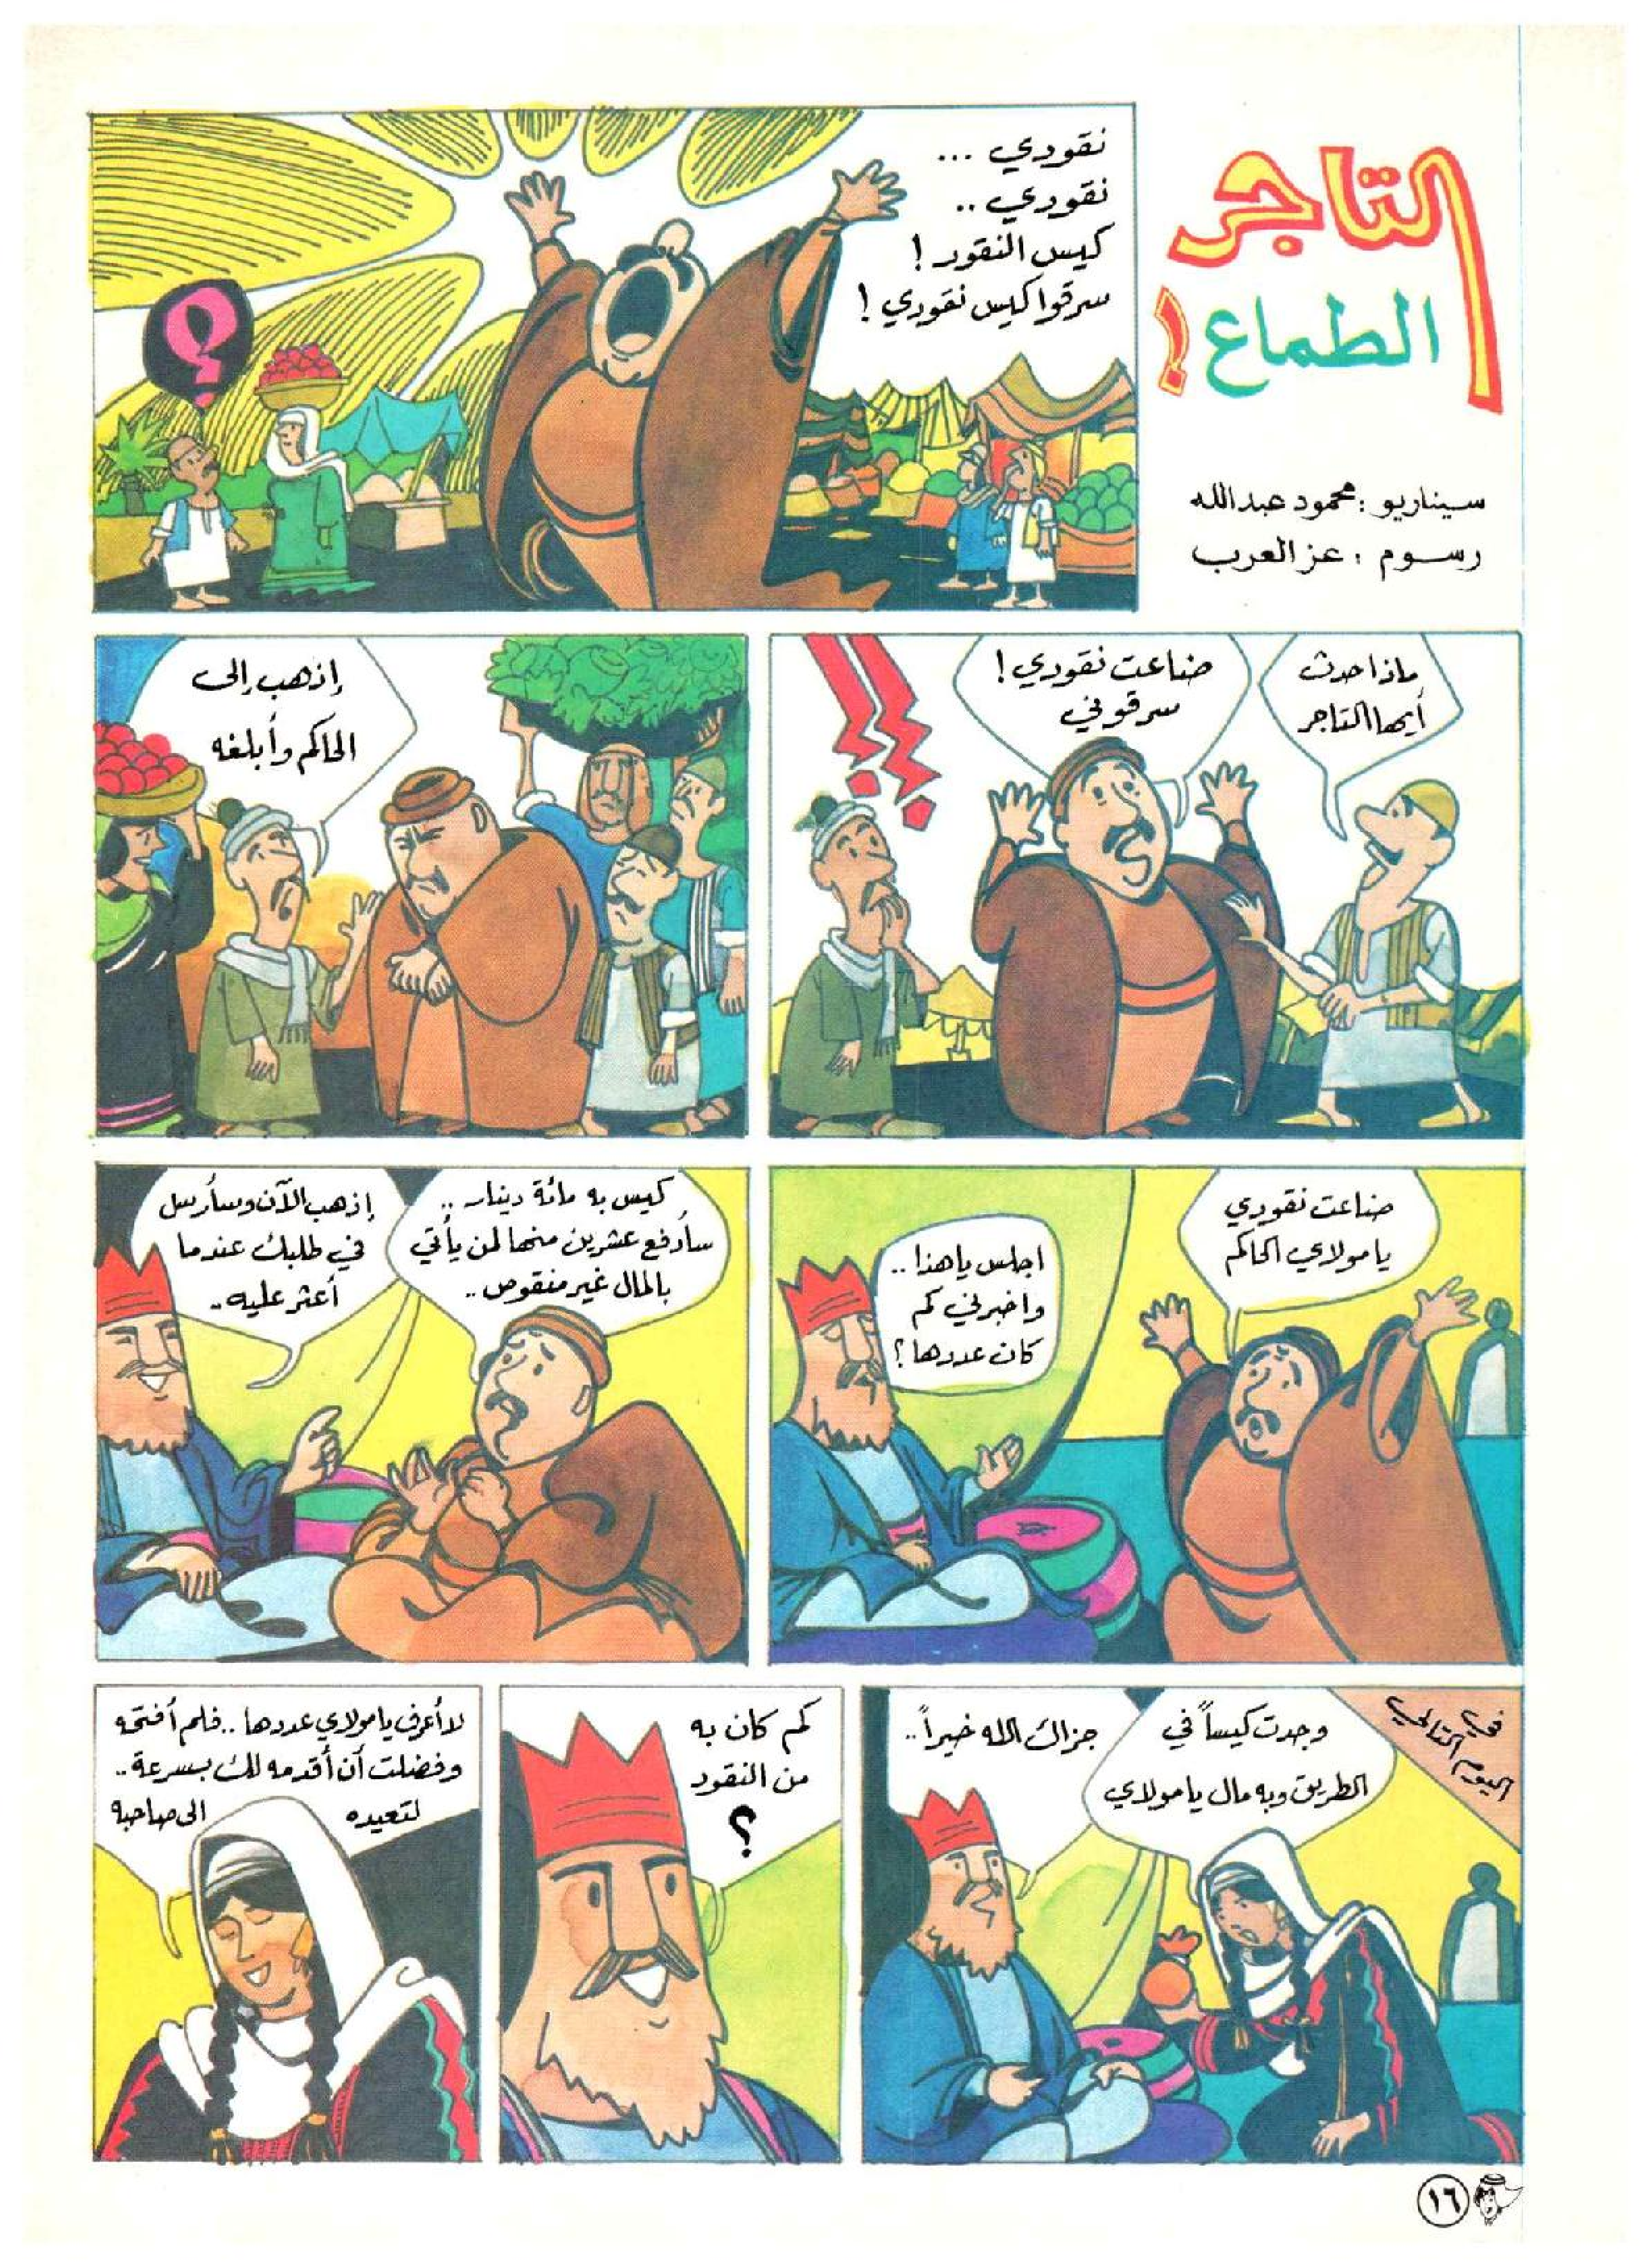 التاجر
الطماع!
سيناريو : محمود عبدالله
رسوم : عز العرب
نقودي ...
نقودي ..
كيس النقود !
سرقوا كيس نقودي !
؟
ماذا حدث
أيها التاجر
ضاعت نقودي !
سرقوني
!!
إذهب إلى
الحاكم وأبلغه
ضاعت نقودي
يا مولاي الحاكم
اجلس يا هذا ..
واخبرني كم
كان عددها ؟
كيس به مائة دينار ..
سأدفع عشرين منها لمن يأتي
بالمال غير منقوص ..
إذهب الآن وسأرسل
في طلبك عندما
أعثر عليه ..
في
اليوم التالي
وجدت كيساً في
الطريق وبه مال يا مولاي
جزاك الله خيراً ..
كم كان به
من النقود
؟
لا أعرف يا مولاي عددها .. فلم أفتحه
وفضلت أن أقدمه لك بسرعة ..
لتعيده الى صاحبه
١٦